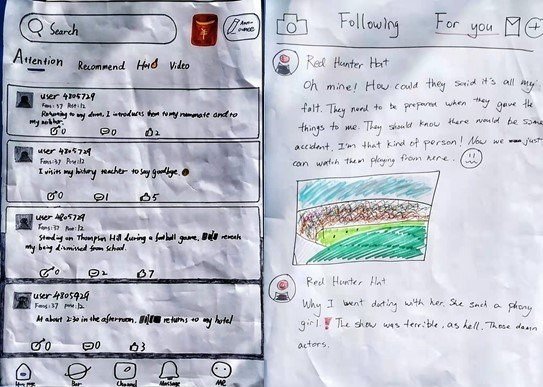 Search
Attention
Recommend
Hot
Video
user 4805729
Fans:37 Post:12
Returning to my dorm, I introduces them to my roommate and to
my neighbor.
0
0
2
user 4805729
Fans:37 Post:12
I visits my history teacher to say goodbye.
0
1
5
user 4805729
Fans:37 Post:12
Standing on Thompson Hill during a football game, reveals
my being dismissed from school.
0
2
7
user 4805729
At about 2:30 in the afternoon, returns to my hotel
0
0
3
Home page
Bar
Channel
Message
Me
Following
For you
Red Hunter Hat
Oh mine! How could they said it's all my
falt. They need to be prepared when they gave the
things to me. They should know there would be some
accident, I'm that kind of person! Now we just
can watch them playing from here.
Red Hunter Hat
Why I went dating with her. She such a phony
girl. The show was terrible, as hell. Those damn
actors.